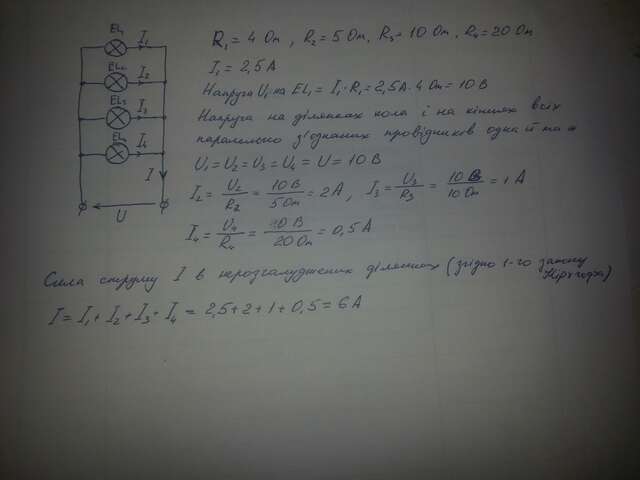 EL₁ I₁
EL₂ I₂
EL₃ I₃
EL₄ I₄
I
U
R₁ = 4 Ом, R₂ = 5 Ом, R₃ = 10 Ом, R₄ = 20 Ом
I₁ = 2,5 А
Напруга U₁ на EL₁ = I₁·R₁ = 2,5А·4 Ом = 10 В
Напруга на ділянках кола і на кінцях всіх
паралельно з'єднаних провідників одна й та ж
U₁ = U₂ = U₃ = U₄ = U = 10 В
I₂ = U₂/R₂ = 10 В/5 Ом = 2 А, I₃ = U₃/R₃ = 10 В/10 Ом = 1 А
I₄ = U₄/R₄ = 10 В/20 Ом = 0,5 А
Сила струму I в нерозгалуджених ділянках (згідно 1-го закону
Кірхгофа)
I = I₁ + I₂ + I₃ + I₄ = 2,5+2+1+0,5 = 6 А